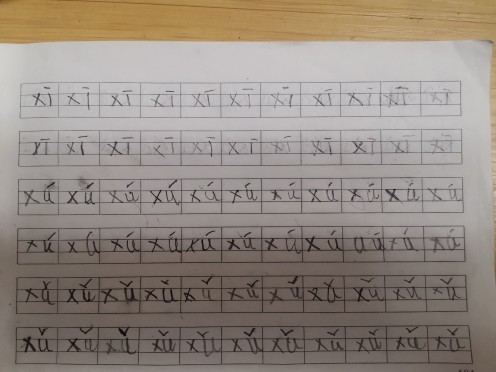 xī xī xī xī xī xī xī xī xī xī xī
xī xī xī xī xī xī xī xī xī xī xī
xú xú xú xú xú xú xú xú xú xú xú
xú xú xú xú xú xú xú xú xú xú
xǔ xǔ xǔ xǔ xǔ xǔ xǔ xǔ xǔ xǔ xǔ
xǔ xǔ xǔ xǔ xǔ xǔ xǔ xǔ xǔ xǔ xǔ